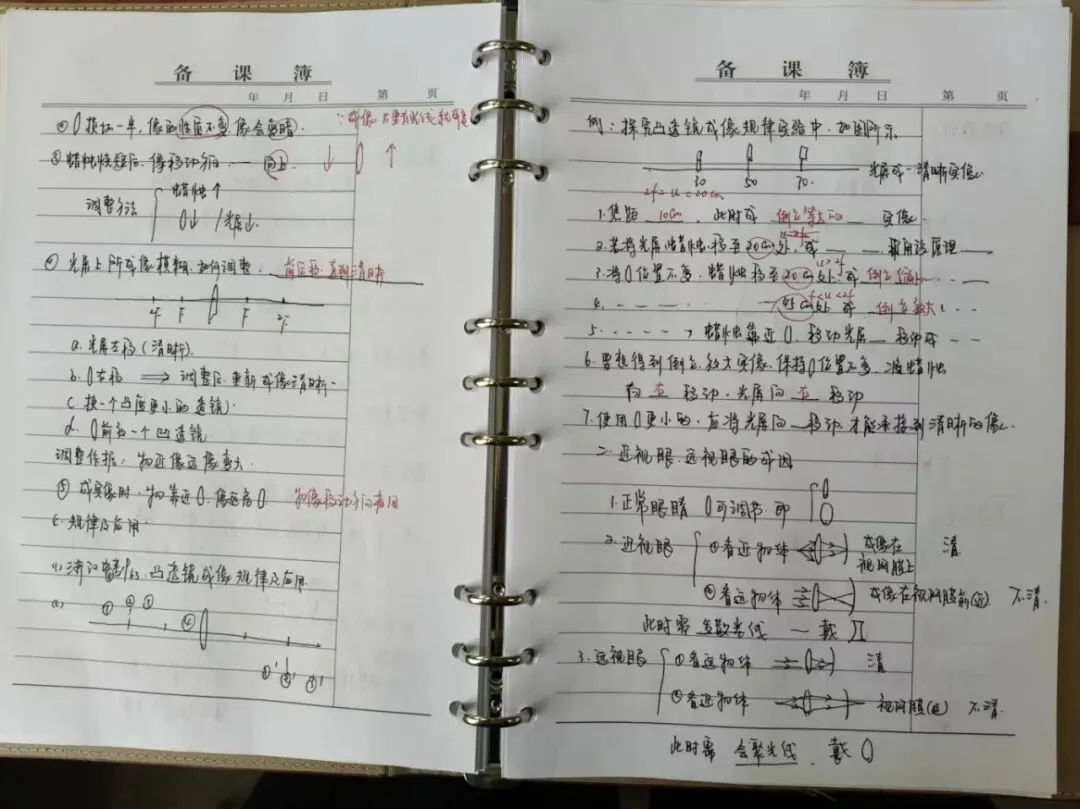 备 课 簿
年 月 日 第 页
② 损坏一半,像的性质不变,像会变暗.
③蜡烛烧短后,像移动方向 —— 向上. ↓ ↑
调整方法 蜡烛↑
↓ / 光屏↓.
④ 光屏上所成像模糊,如何调整. 直到清晰
2F F F 2F
a. 光屏左移(清晰).
b. 左移 ⟹ 调整后,重新成像清晰.
c. 换一个凸度更小的透镜.
d. 前加一个凹透镜.
调整依据:物近像远像变大.
⑤ 成实像时,物靠近,像远离 物像移动方向
c. 规律及应用.
P63. 凸透镜成像规律及应用.
① ② ③ ④
①' ②' ③'
备 课 簿
年 月 日 第 页
例:探究凸透镜成像规律实验中,如图所示
30 50 70. 光屏成一清晰实像.
2f = u = 20cm
1. 焦距 10cm, 此时成 倒立等大的 实像.
u>2f
2. 若将光屏蜡烛移至20cm处,成 —— 应用该原理 ——
u>2f
3. 将位置不变,蜡烛移至20cm处,成 倒立缩小 - - -
f<u<2f
4. - - - - - - cm处 成 倒立放大 - - -
5. - - - - -, 蜡烛靠近,移动光屏 — 移动成 - -
6. 要想得到倒立放大实像,保持位置不变,将蜡烛
向 右 移动,光屏向 右 移动
7. 使用更小的,应将光屏向—移动,才能承接到清晰的像.
二. 近视眼、远视眼的成因
1. 正常眼睛 可调节,即
2. 近视眼 ①看近物体 成像在视网膜上 清
②看远物体 成像在视网膜前(近). 不清.
此时需 发散光线 — 戴
3. 远视眼 ①看远物体 清
②看近物体 视网膜(远) 不清.
此时需 会聚光线. 戴